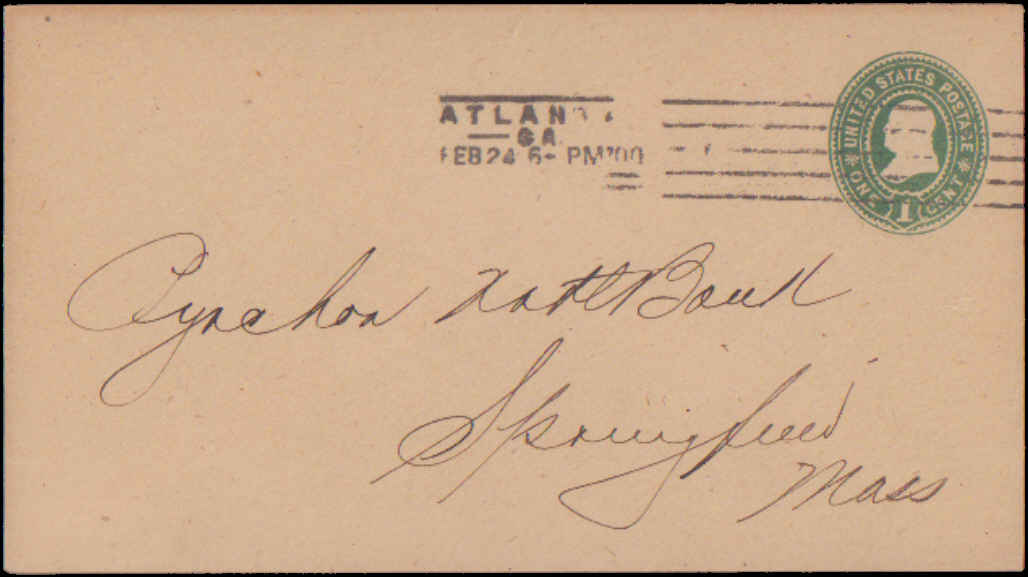 ATLANTA
GA.
FEB 24 6- PM '00
UNITED STATES POSTAGE
ONE 1 CENT
Pynchon Natl Bank
Springfield
Mass